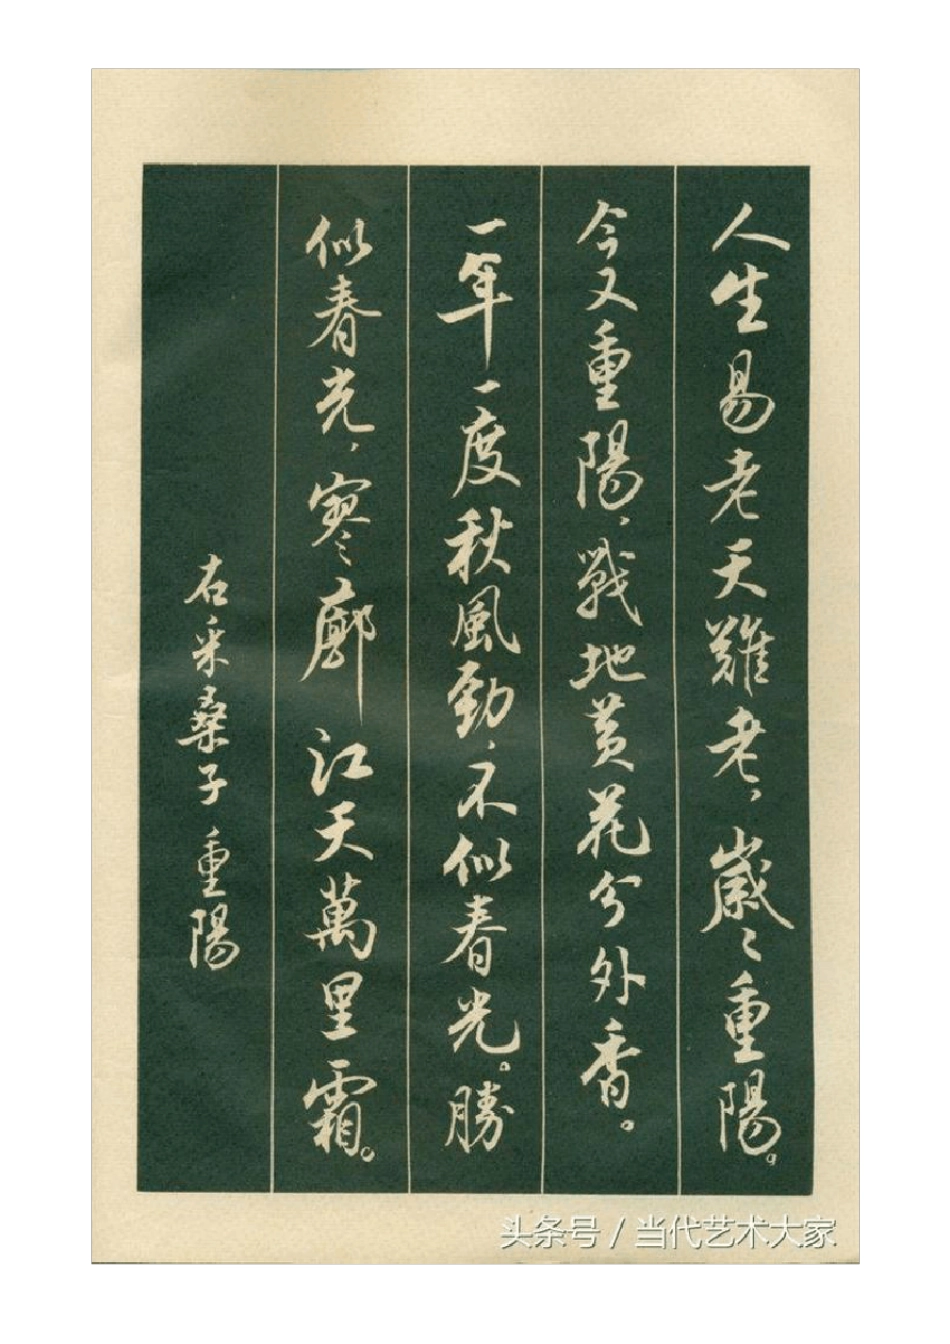 人生易老天難老，歲〻重陽。
今又重陽，戰地黄花分外香。
一年一度秋風勁，不似春光。勝
似春光，寥廓江天萬里霜。
右采桑子 重陽
头条号 / 当代艺术大家